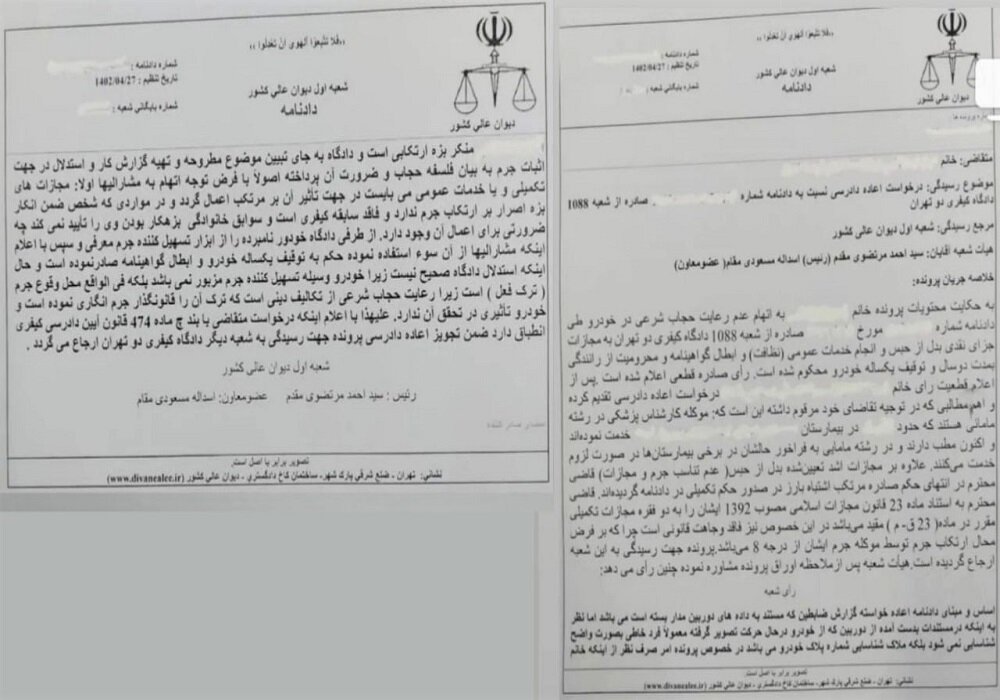 «فلا تتبعوا الهوی ان تعدلوا»
شماره دادنامه :
تاریخ تنظیم : 1402/04/27
شماره بایگانی شعبه :
شعبه اول دیوان عالی کشور
دادنامه
دیوان عالی کشور
متقاضی: خانم
موضوع رسیدگی: درخواست اعاده دادرسی نسبت به دادنامه شماره صادره از شعبه 1088
دادگاه کیفری دو تهران
مرجع رسیدگی: شعبه اول دیوان عالی کشور
هیأت شعبه آقایان: سید احمد مرتضوی مقدم (رئیس) اسداله مسعودی مقام( عضومعاون)
خلاصه جریان پرونده:
به حکایت محتویات پرونده خانم به اتهام عدم رعایت حجاب شرعی در خودرو طی
دادنامه شماره مورخ صادره از شعبه 1088 دادگاه کیفری دو تهران به مجازات
جزای نقدی بدل از حبس و انجام خدمات عمومی (نظافت) و ابطال گواهینامه و محرومیت از رانندگی
بمدت دوسال و توقیف یکساله خودرو محکوم شده است. رأی صادره قطعی اعلام شده است .پس از
اعلام قطعیت رای خانم درخواست اعاده دادرسی تقدیم کرده
و اهم مطالبی که در توجیه تقاضای خود مرقوم داشته این است که: موکله کارشناس پزشکی در رشته
مامائی هستند که حدود در بیمارستان خدمت نموده‌اند
و اکنون مطب دارند و در رشته مامایی به فراخور حالشان در برخی بیمارستان‌ها در صورت لزوم
خدمت می‌کنند. علاوه بر مجازات اشد تعیین‌شده بدل از حبس( عدم تناسب جرم و مجازات) قاضی
محترم در انتهای حکم صادره مرتکب اشتباه بارز در صدور حکم تکمیلی در دادنامه گردیده‌اند. قاضی
محترم به استناد ماده 23 قانون مجازات اسلامی مصوب 1392 ایشان را به دو فقره مجازات تکمیلی
مقرر در ماده( 23 ق- م ) مقید می‌باشد در این خصوص نیز فاقد وجاهت قانونی است چرا که بر فرض
محال ارتکاب جرم توسط موکله جرم ایشان از درجه 8 می‌باشد.پرونده جهت رسیدگی به این شعبه
ارجاع گردیده است.هیأت شعبه پس ازملاحظه اوراق پرونده مشاوره نموده چنین رأی می دهد:
رأی شعبه
اساس و مبنای دادنامه اعاده خواسته گزارش ضابطین که مستند به داده های دوربین مدار بسته است می باشد اما نظر
به اینکه درمستندات بدست آمده از دوربین که از خودرو درحال حرکت تصویر گرفته معمولاً فرد خاطی بصورت واضح
شناسایی نمی شود بلکه ملاک شناسایی شماره پلاک خودرو می باشد در خصوص پرونده امر صرف نظر از اینکه خانم
تصویر برابر با اصل است.
نشانی: تهران - ضلع شرقی پارک شهر- ساختمان کاخ دادگستری - دیوان عالی کشور (www.divanealee.ir)
«فلا تتبعوا الهوی ان تعدلوا»
شماره دادنامه :
تاریخ تنظیم : 1402/04/27
شماره بایگانی شعبه :
شعبه اول دیوان عالی کشور
دادنامه
دیوان عالی کشور
منکر بزه ارتکابی است و دادگاه به جای تبیین موضوع مطروحه و تهیه گزارش کار و استدلال در جهت
اثبات جرم به بیان فلسفه حجاب و ضرورت آن پرداخته اصولاً با فرض توجه اتهام به مشارالیها اولا: مجازات های
تکمیلی و یا خدمات عمومی می بایست در جهت تأثیر آن بر مرتکب اعمال گردد و در مواردی که شخص ضمن انکار
بزه اصرار بر ارتکاب جرم ندارد و فاقد سابقه کیفری است و سوابق خانوادگی بزهکار بودن وی را تأیید نمی کند چه
ضرورتی برای اعمال آن وجود دارد. از طرفی دادگاه خودور نامبرده را از ابزار تسهیل کننده جرم معرفی و سپس با اعلام
اینکه مشارالیها از آن سوء استفاده نموده حکم به توقیف یکساله خودرو و ابطال گواهینامه صادرنموده است و حال
اینکه استدلال دادگاه صحیح نیست زیرا خودرو وسیله تسهیل کننده جرم مزبور نمی باشد بلکه فی الواقع محل وقوع جرم
( ترک فعل ) است زیرا رعایت حجاب شرعی از تکالیف دینی است که ترک آن را قانونگذار جرم انگاری نموده است و
خودرو تأثیری در تحقق آن ندارد. علیهذا با اعلام اینکه درخواست متقاضی با بند چ ماده 474 قانون آیین دادرسی کیفری
انطباق دارد ضمن تجویز اعاده دادرسی پرونده جهت رسیدگی به شعبه دیگر دادگاه کیفری دو تهران ارجاع می گردد .
شعبه اول دیوان عالی کشور
رئیس : سید احمد مرتضوی مقدم عضومعاون: اسداله مسعودی مقام
امضای صادر کننده
تصویر برابر با اصل است.
نشانی: تهران - ضلع شرقی پارک شهر- ساختمان کاخ دادگستری - دیوان عالی کشور (www.divanealee.ir)